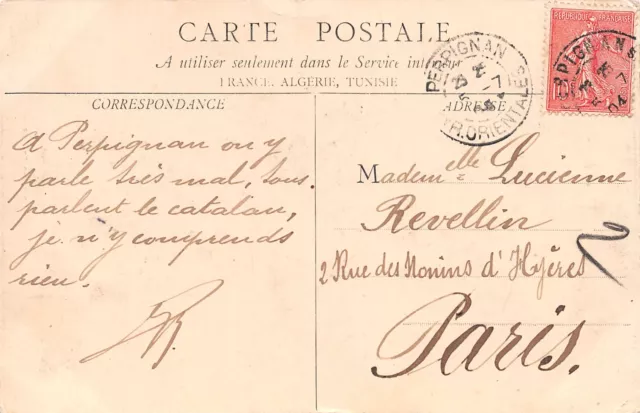 CARTE POSTALE
A utiliser seulement dans le Service intérieur
FRANCE, ALGÉRIE, TUNISIE
CORRESPONDANCE
A Perpignan on y
parle très mal, tous
parlent le catalan,
je n'y comprends
rien.
ADRESSE
Mademelle Lucienne
Revellin
2 Rue des Nonins d'Hyères
Paris.
PERPIGNAN
PR. ORIENTALES
REPUBLIQUE FRANÇAISE
PERPIGNAN
04